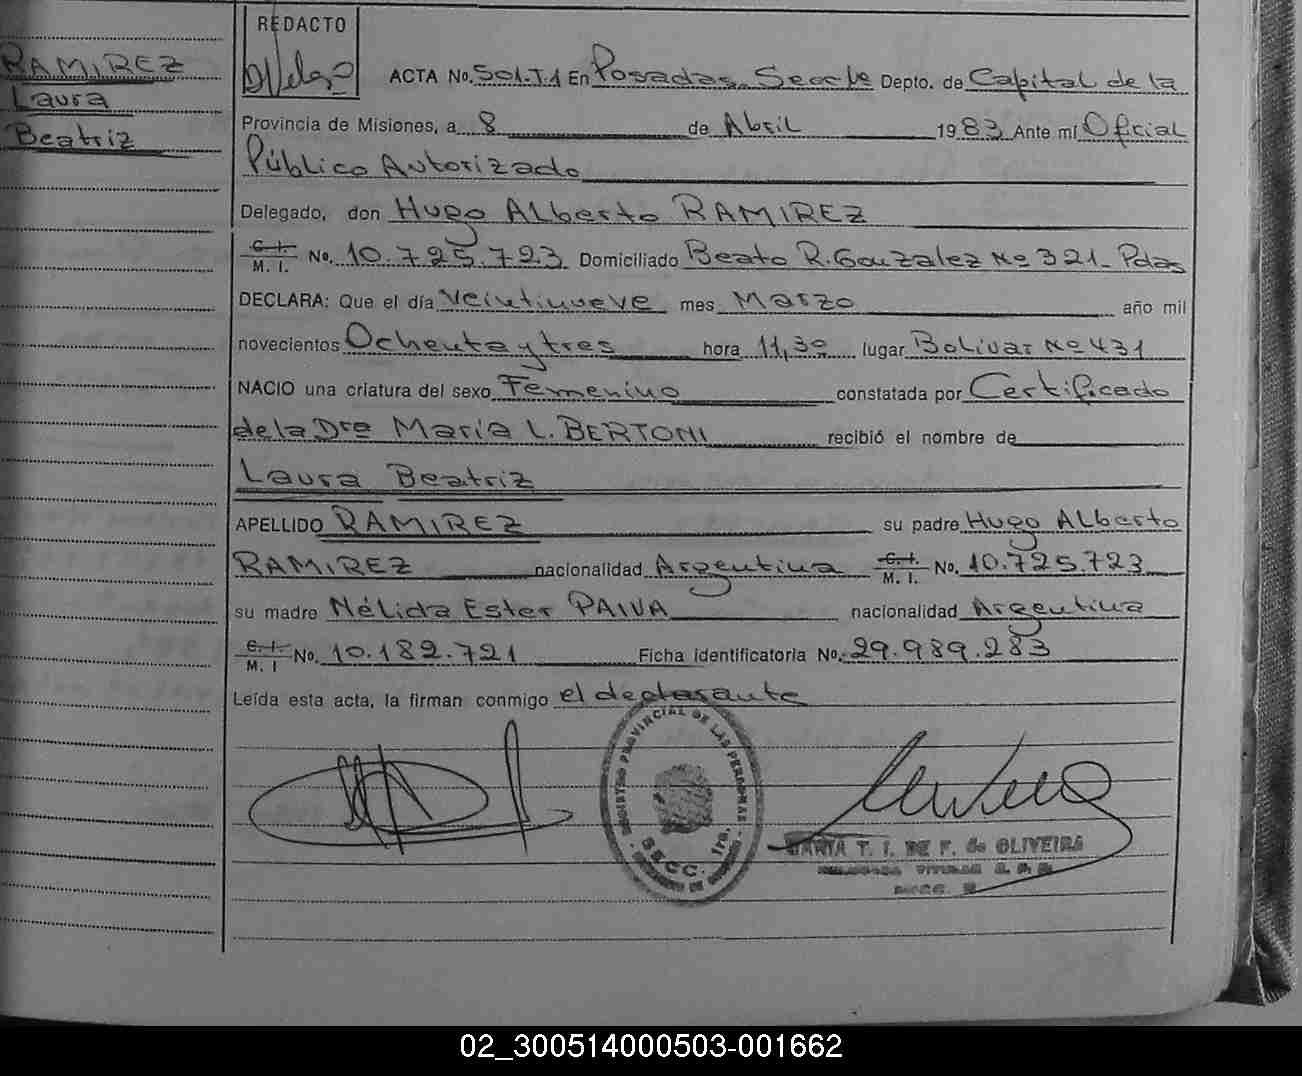 RAMIREZ
Laura
Beatriz
REDACTO
ACTA No. 501.T.1 En Posadas, Depto. de Capital de la
Provincia de Misiones, a 8 de Abril 1983 Ante mí Oficial
Público Autorizado
Delegado, don Hugo Alberto RAMIREZ
C. I.
M. I. No. 10.725.723 Domiciliado Beato R. Gonzalez Nº 321 - Pdas
DECLARA: Que el día veintinueve mes Marzo año mil
novecientos Ochenta y tres hora 11,30 lugar Bolivar Nº 431
NACIO una criatura del sexo Femenino constatada por Certificado
de la Dra María L. BERTONI recibió el nombre de
Laura Beatriz
APELLIDO RAMIREZ su padre Hugo Alberto
RAMIREZ nacionalidad Argentina C. I. M. I. No. 10.725.723
su madre Nélida Ester PAIVA nacionalidad Argentina
C. I. M. I No. 10.182.721 Ficha identificatoria No. 29.989.283
Leída esta acta, la firman conmigo el declarante
REGISTRO PROVINCIAL DE LAS PERSONAS
SECC. 1ra.
MARIA T. I. DE F. de OLIVEIRA
02_300514000503-001662